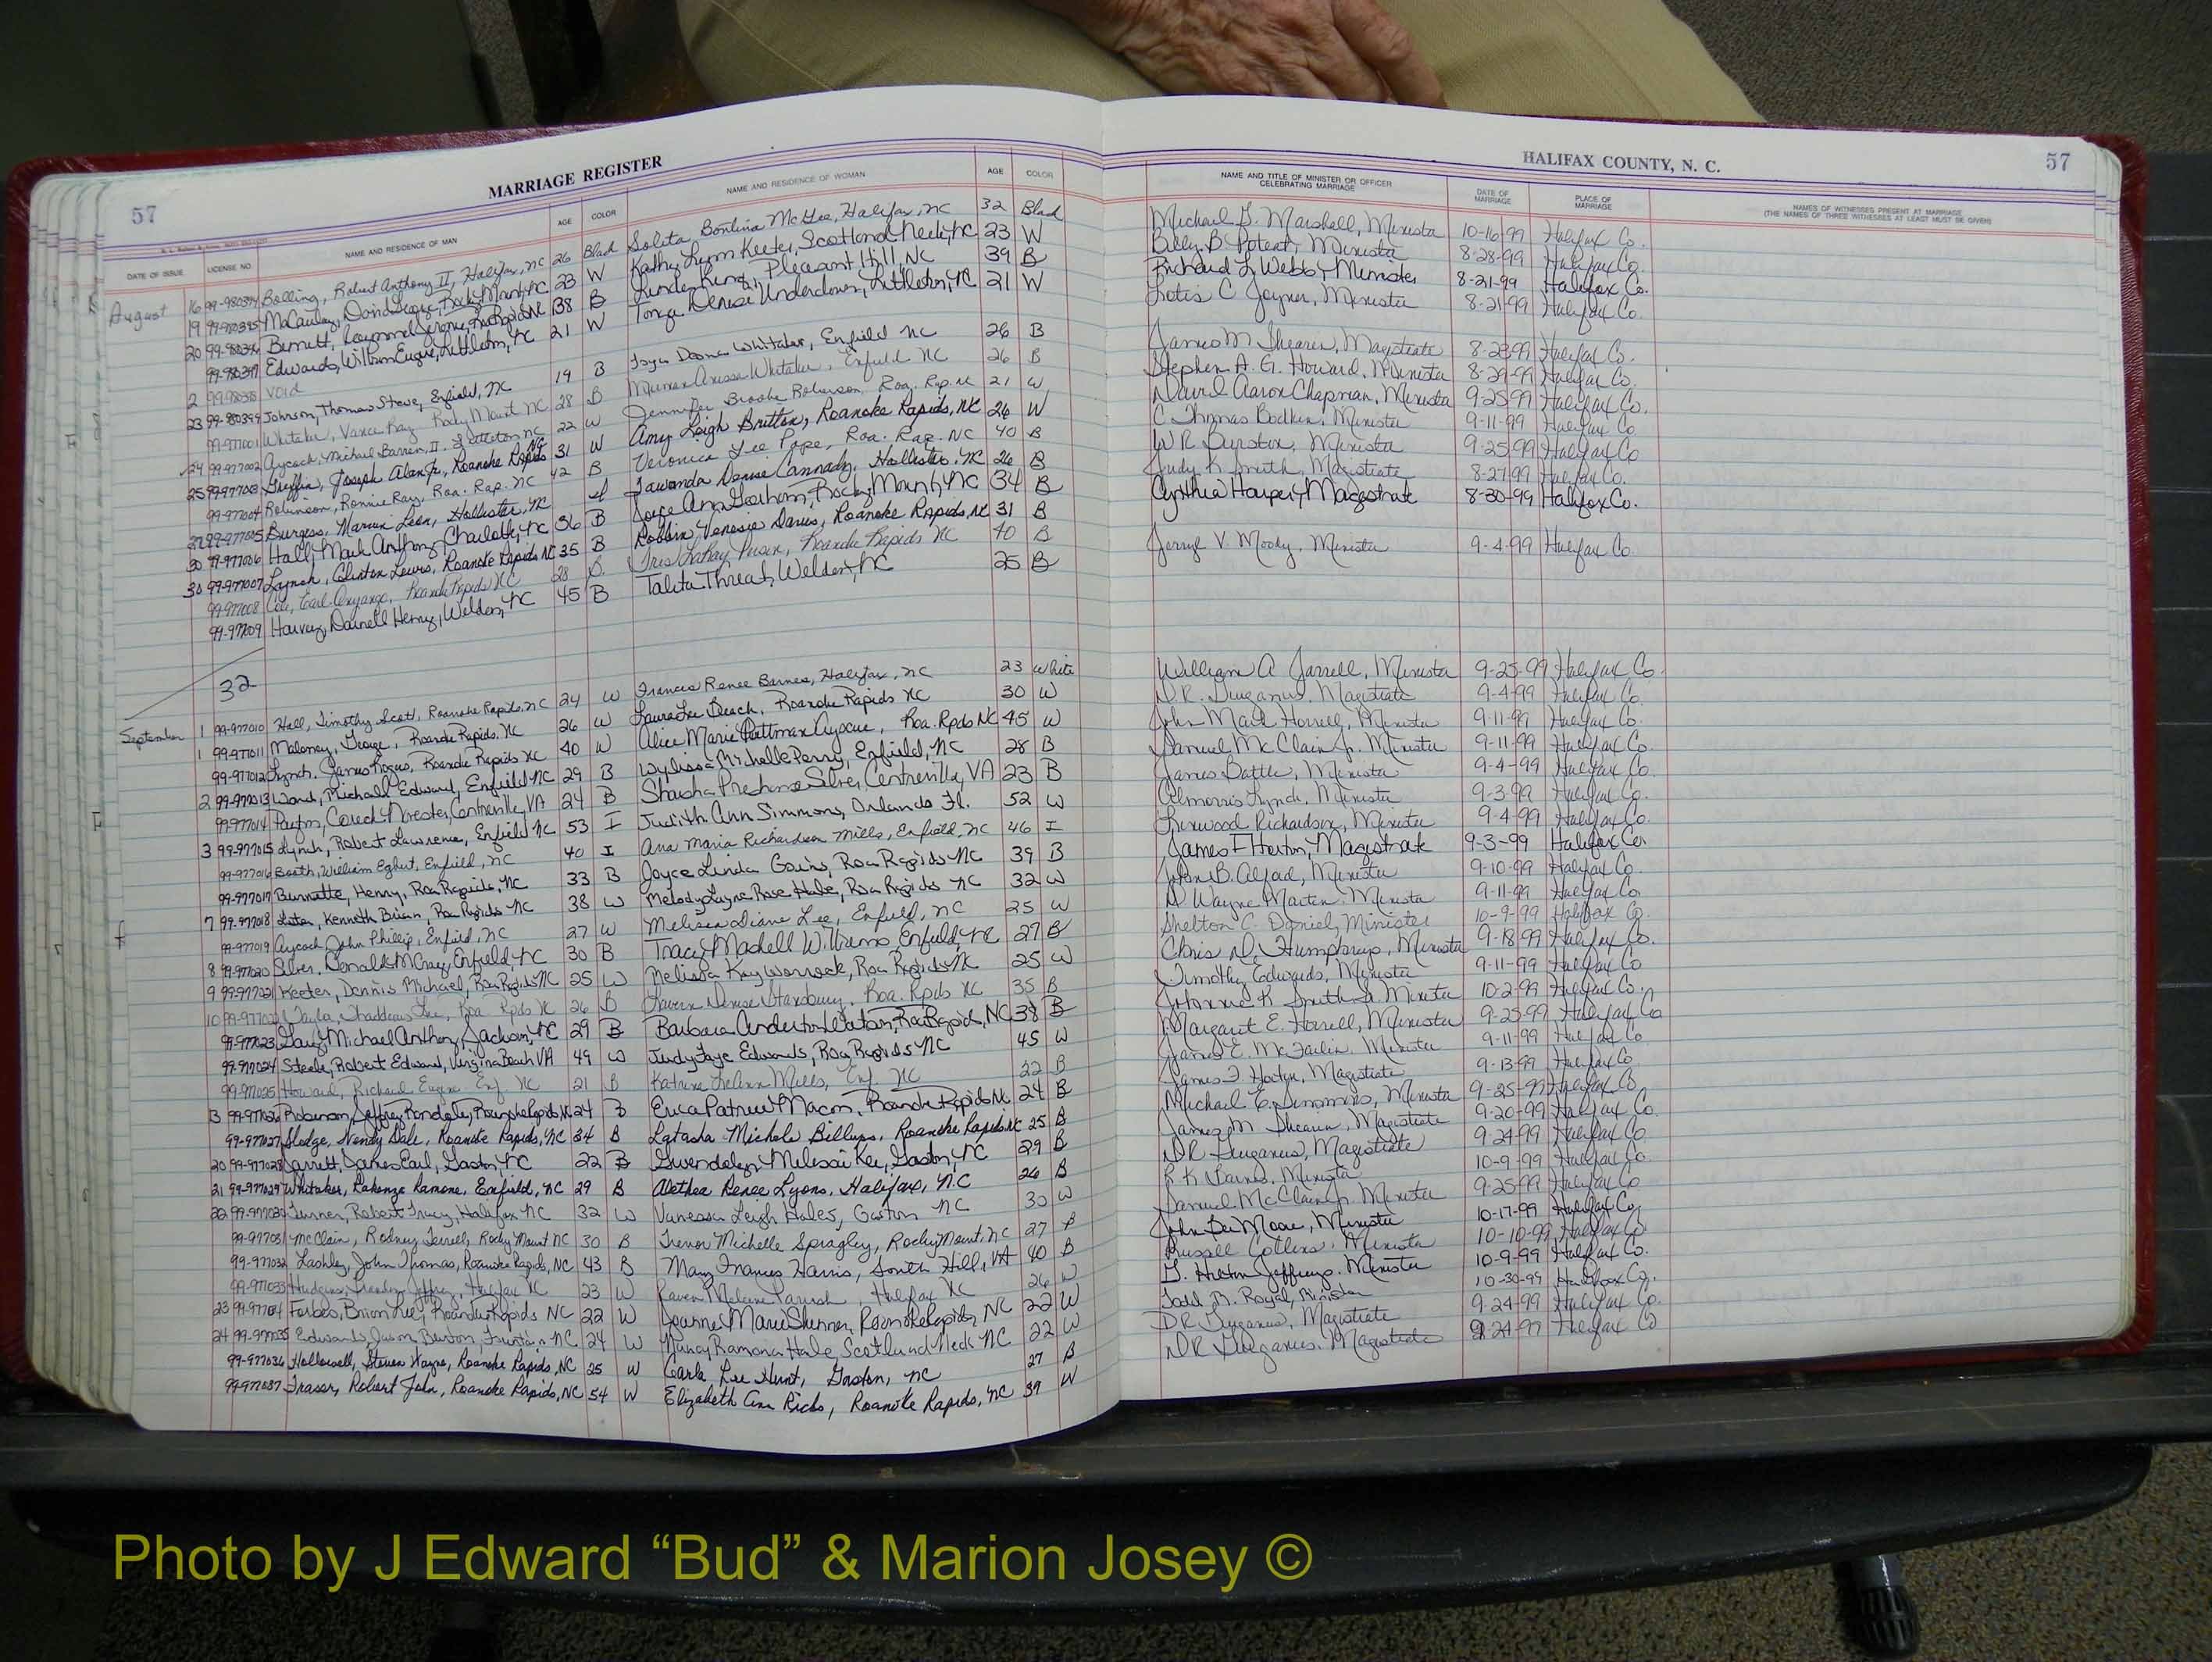 MARRIAGE REGISTER
57
DATE OF ISSUE LICENSE NO. NAME AND RESIDENCE OF MAN AGE COLOR NAME AND RESIDENCE OF WOMAN AGE COLOR
August 16 Bolling, Robert Anthony II, Halifax, NC 26 Black Solita Bontina McGee, Halifax, NC 32 Black
19 McCauley, David George, Rocky Mount, NC 23 W Kathy Lynn Keeter, Scotland Neck, NC 23 W
20 38 B Linda King, Pleasant Hill, NC 39 B
Edwards, William Eugene, Littleton, NC 21 W Tonya Denise Underdown, Littleton, NC 21 W
2 Void
23 Johnson, Thomas Steve, Enfield, NC 19 B Donna Whitaker, Enfield NC 26 B
99-977001 Whitaker, Vance Ray Rocky Mount NC 28 B Whitaker, Enfield NC 26 B
24 99-977002 Aycock, Michael Barren, II Littleton NC 22 W Jennifer Brooke Roberson, Roa. Rap. NC 21 W
25 99-977003 Griffin, Joseph Alan Jr., Roanoke Rapids NC 31 W Amy Leigh Britton, Roanoke Rapids, NC 26 W
99-977004 Robinson, Ronnie Ray, Roa. Rap. NC 42 B Veronica Lee Pope, Roa. Rap. NC 40 B
27 99-977005 Burgess, Marvin Leon, Hollister, NC Lawanda Denise Cannady, Hollister, NC 26 B
30 99-977006 Hall, Mark Anthony, Charlotte, NC 36 B Joyce Ann Gorham, Rocky Mount, NC 34 B
30 99-977007 Lynch, Clinton Lewis, Roanoke Rapids NC 35 B Robbin Venesia Davis, Roanoke Rapids, NC 31 B
99-977008 Earl Roanoke Rapids NC 28 B Roanoke Rapids NC 40 B
99-977009 Harvey, Darnell Henry, Weldon, NC 45 B Talita Threat, Weldon, NC 25 B
32
September 1 99-977010 Hall, Timothy Scott, Roanoke Rapids, NC 24 W Frances Renee Barnes, Halifax, NC 23 White
1 99-977011 Maloney, George, Roanoke Rapids, NC 26 W Laura Lee Beach, Roanoke Rapids NC 30 W
99-977012 Lynch, James Roger, Roanoke Rapids NC 40 W Alice Marie Pittman Aycock, Roa. Rpds NC 45 W
2 99-977013 Ward, Michael Edward, Enfield NC 29 B Michelle Perry, Enfield, NC 28 B
99-977014 Centreville, VA 24 B Silver, Centreville, VA 23 B
3 99-977015 Lynch, Robert Lawrence, Enfield NC 53 I Judith Ann Simmons, Orlando Fl. 52 W
99-977016 Booth, William Egbert, Enfield, NC 40 I Ana Maria Richardson Mills, Enfield, NC 46 I
99-977017 Burnette, Henry, Roa Rapids, NC 33 B Joyce Linda Goins, Roa Rapids NC 39 B
7 99-977018 Kenneth Brian, Roa Rapids NC 38 W Melody Layne Rose Hale, Roa Rapids NC 32 W
99-977019 Aycock, John Phillip, Enfield, NC 27 W Melissa Diane Lee, Enfield, NC 25 W
8 99-977020 Silver, Donald McCray, Enfield, NC 30 B Tracey Machell Williams, Enfield, NC 27 B
9 99-977021 Keeter, Dennis Michael, Roa Rapids NC 25 W Melissa Kay Worrock, Roa Rapids NC 25 W
10 99-977022 Taylor, Thaddeus Lee, Roa Rpds NC 26 B Denise Stansbury, Roa. Rpds NC 35 B
99-977023 Gary, Michael Anthony, Jackson, NC 29 B Barbara Anderton Watson, Roa Rapids, NC 38 B
99-977024 Steele, Robert Edward, Virginia Beach VA 49 W Judy Faye Edwards, Roa Rapids NC 45 W
99-977025 Howard, Richard Eugene Enf. NC 21 B Katrina Mills, Enf. NC 22 B
13 99-977026 Robinson, Jeffrey Roanoke Rapids, NC 24 B Erica Patrice Macon, Roanoke Rapids NC 24 B
99-977027 Sledge, Dale, Roanoke Rapids, NC 34 B Latasha Michele Billups, Roanoke Rapids NC 25 B
20 99-977028 Jarrett, James Earl, Gaston, NC 22 B Gwendolyn Melissa Kee, Gaston, NC 29 B
21 99-977029 Whitaker, Lakenza Ramone, Enfield, NC 29 B Alethea Renee Lyons, Halifax, NC 26 B
22 99-977030 Turner, Robert Tracy, Halifax NC 32 W Vanessa Leigh Hales, Gaston NC 30 W
99-977031 McClain, Rodney Terrell, Rocky Mount NC 30 B Trenor Michelle Spragley, Rocky Mount, NC 27 B
99-977032 Lashley, John Thomas, Roanoke Rapids, NC 43 B Mary Frances Harris, South Hill, VA 40 B
99-977033 Hudgins, Jeffrey, Halifax NC 23 W Raven Melanie Parrish Halifax NC 26 W
23 99-977034 Forbes, Brian Lee, Roanoke Rapids NC 22 W Jeanne Marie Skinner, Roanoke Rapids, NC 22 W
24 99-977035 Edwards, Jason Burton, Fountain, NC 24 W Nancy Ramona Hale, Scotland Neck NC 22 W
99-977036 Hollowell, Steven Wayne, Roanoke Rapids, NC 25 W Carla Lee Hunt, Gaston, NC 27 B
99-977037 Fraser, Robert John, Roanoke Rapids, NC 54 W Elizabeth Ann Ricks, Roanoke Rapids, NC 39 W
HALIFAX COUNTY, N. C.
57
NAME AND TITLE OF MINISTER OR OFFICER CELEBRATING MARRIAGE DATE OF MARRIAGE PLACE OF MARRIAGE NAMES OF WITNESSES PRESENT AT MARRIAGE
(THE NAMES OF THREE WITNESSES AT LEAST MUST BE GIVEN)
Michael G. Marshall, Minister 10-16-99 Halifax Co.
Billy B. Poteat, Minister 8-28-99 Halifax Co.
Richard L. Webb, Minister 8-21-99 Halifax Co.
Lotis C Joyner, Minister 8-21-99 Halifax Co.
James M Shearin, Magistrate 8-23-99 Halifax Co.
Stephen A. G. Howard, Minister 8-29-99 Halifax Co.
David Aaron Chapman, Minister 9-25-99 Halifax Co.
C. Thomas Bodkin, Minister 9-11-99 Halifax Co
W R Burston, Minister 9-25-99 Halifax Co
Judy K Smith, Magistrate 8-27-99 Halifax Co.
Cynthia Harper, Magistrate 8-30-99 Halifax Co.
Jerryl V. Moody, Minister 9-4-99 Halifax Co
William A Jarrell, Minister 9-25-99 Halifax Co.
D.R. Magistrate 9-4-99 Halifax Co.
John Mark Horrell, Minister 9-11-99 Halifax Co.
Samuel McClain Jr. Minister 9-11-99 Halifax Co.
James Battle, Minister 9-4-99 Halifax Co.
Almorris Lynch, Minister 9-3-99 Halifax Co.
Linwood Richardson, Minister 9-4-99 Halifax Co.
James F Horton, Magistrate 9-3-99 Halifax Co
John B. Alford, Minister 9-10-99 Halifax Co.
D. Wayne Martin, Minister 9-11-99 Halifax Co
Shelton C. Daniel, Minister 10-9-99 Halifax Co.
Chris D. Humphreys, Minister 9-18-99 Halifax Co.
Timothy Edwards, Minister 9-11-99 Halifax Co
Johnnie K. Smith Minister 10-2-99 Halifax Co.
Margaret E. Horrell, Minister 9-25-99 Halifax Co
James E. McFailin, Minister 9-11-99 Halifax Co
James F Horton, Magistrate 9-13-99 Halifax Co
Michael E. Simmons, Minister 9-25-99 Halifax Co
James M Shearin, Magistrate 9-20-99 Halifax Co.
DR Magistrate 9-24-99 Halifax Co
Minister 10-9-99 Halifax Co.
Samuel McClain Jr. Minister 9-25-99 Halifax Co
John De Moore, Minister 10-17-99 Halifax Co
Russell Collins, Minister 10-10-99 Halifax Co
G. Hilton Jeffreys, Minister 10-9-99 Halifax Co.
Todd R. Royal, Minister 10-30-99 Halifax Co.
DR Magistrate 9-24-99 Halifax Co.
DR Magistrate 9-24-99 Halifax Co
Photo by J Edward “Bud” & Marion Josey ©